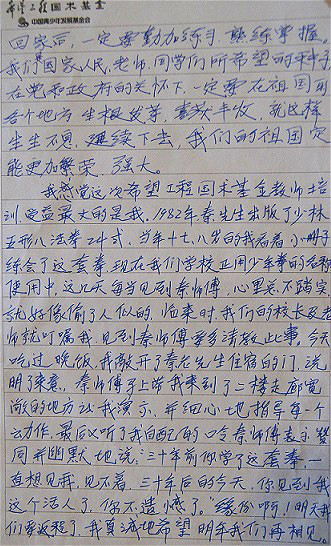 希望工程国术基金
中国青少年发展基金会
回家后，一定要勤加练习，熟练掌握。
我们国家人民、老师、同学们所希望的种子
在党和政府的关怀下，一定要在祖国的
各个地方生根发芽，喜获丰收，就这样
生生不息，延续下去，我们的祖国定
能更加繁荣、强大。
我感觉这次希望工程国术基金教师培
训受益最大的是我。1982年秦先生出版了少林
五形八法拳24式，当年十七、八岁的我看着小册子
练会了这套拳现在我们学校正用少年拳的名称
使用中，这几天每当见到秦师傅，心里总不踏实
就好像偷了人似的，临来时，我们的校长及老
师就叮嘱我，见到秦师傅要多请教此事。今天
吃过晚饭，我敲开了秦庆先生住宿的门，说
明了来意，秦师傅马上带我来到了二楼走廊宽
敞的地方让我演示，并细心地指导每一个
动作，最后听了我自配的口令秦师傅表示赞
同并幽默地说：三十年前你学了这套拳，一
直想见再，见不着，三十年后的今天，你见到我
这个活人了，你不遗憾了。“缘份啊！明天我
们要返程了，我真诚地希望明年我们再相见。